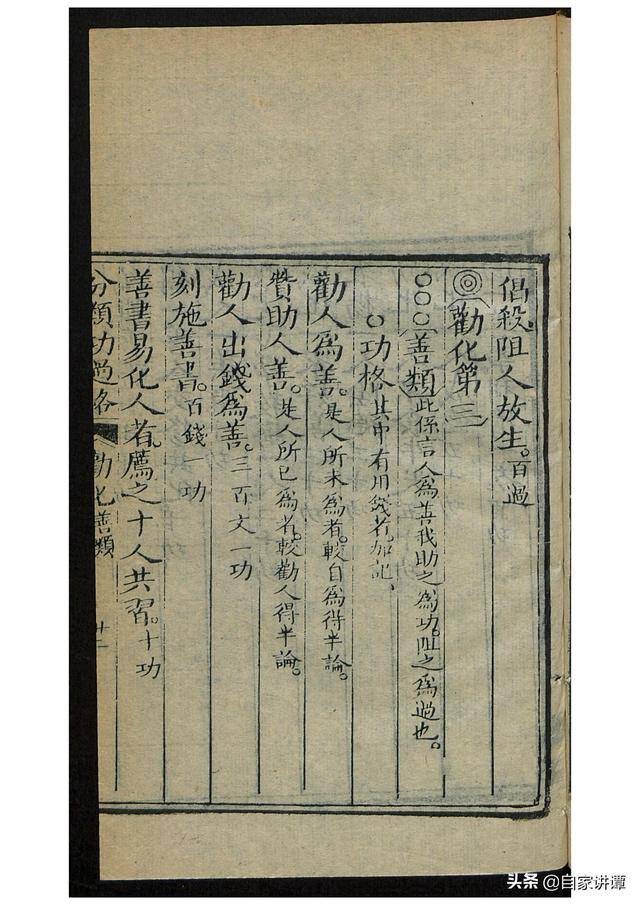 倡殺阻人放生。百過
勸化第三
善類此係言人爲善我助之爲功。阻之爲過也。
功格其中有用錢者。加記、
勸人爲善。是人所未爲者。較自爲得半論。
贊助人善。是人所已爲者。較勸人得半論。
勸人出錢爲善。三百文一功
刻施善書。百錢一功
善書易化人者。薦之十人共習。十功
分類功過格 勸化善類 廿一
头条 @自家讲谭